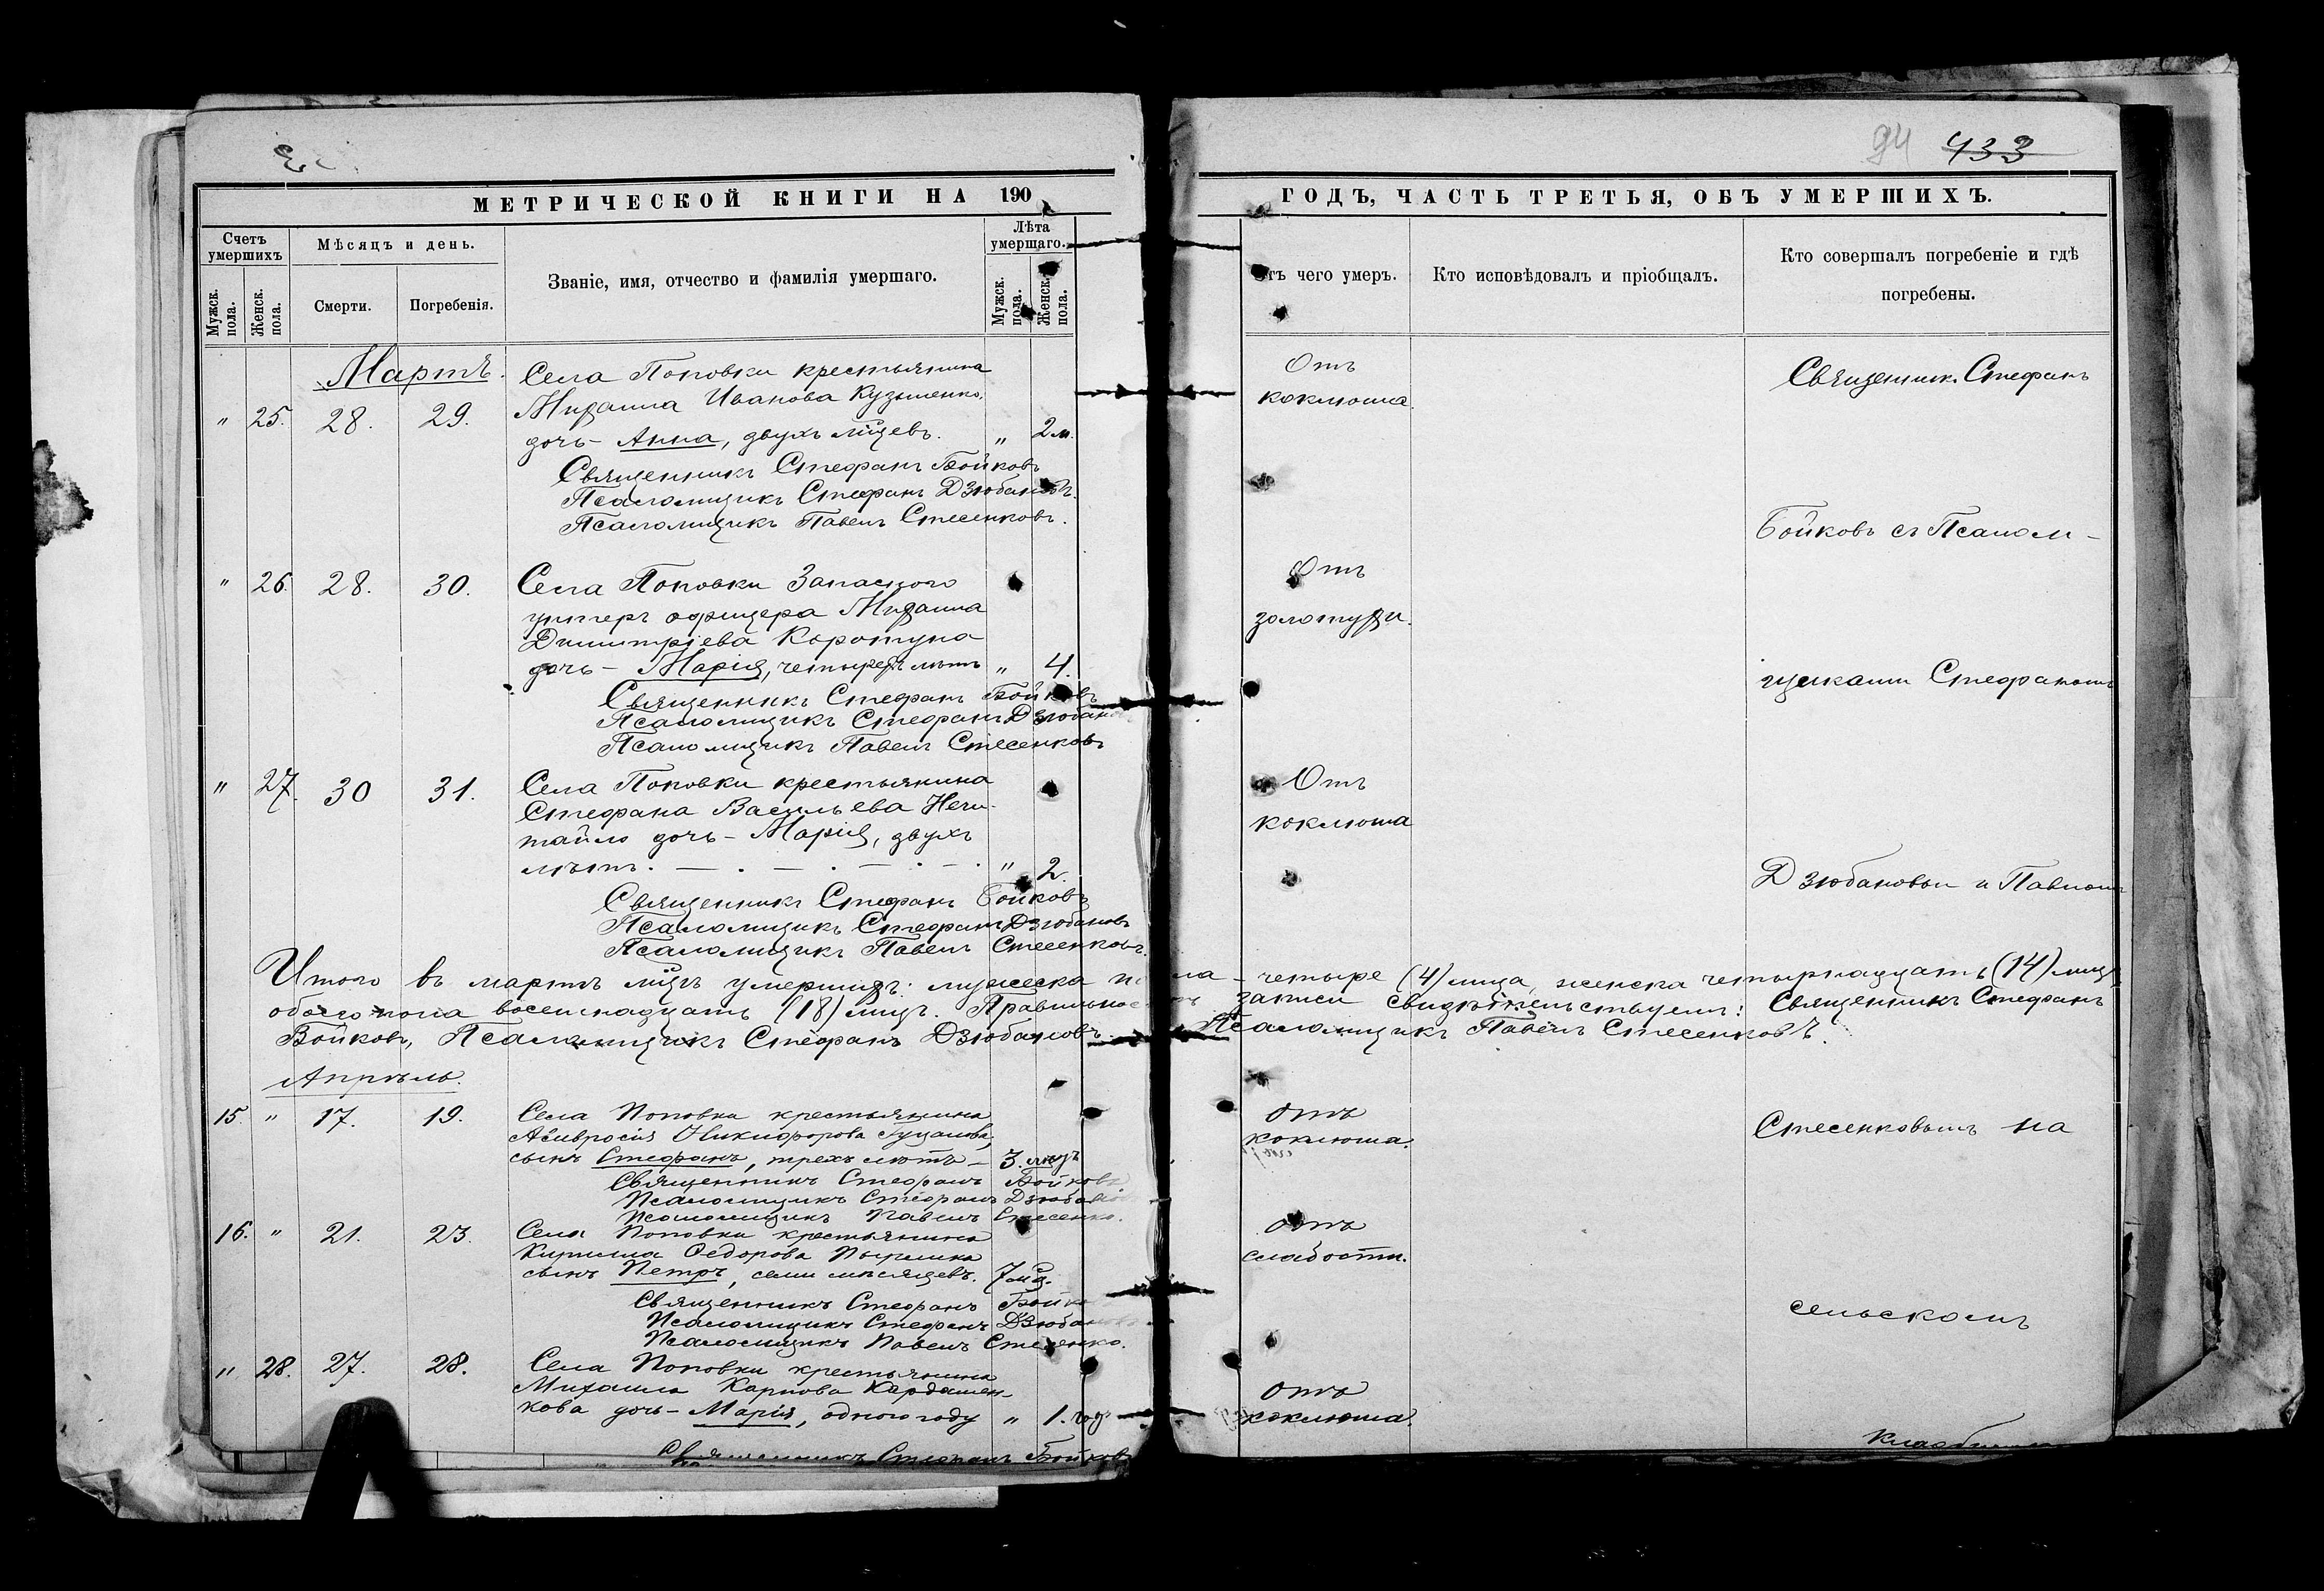 94 433
МЕТРИЧЕСКОЙ КНИГИ НА 190
ГОДЪ, ЧАСТЬ ТРЕТЬЯ, ОБЪ УМЕРШИХЪ.
Счетъ умершихъ
Мѣсяцъ и день.
Званіе, имя, отчество и фамилія умершаго.
Лѣта умершаго.
Мужск. пола.
Женск. пола.
Смерти.
Погребенія.
Мужск. пола.
Женск. пола.
Отъ чего умеръ.
Кто исповѣдовалъ и пріобщалъ.
Кто совершалъ погребеніе и гдѣ
погребены.
Мартъ.
" 25. 28. 29.
Села Поповки крестьянина
Михаила Иванова Кузьменко,
дочь - Анна, двухъ мцевъ. " 2 м.
Священникъ Стефанъ Бойковъ
Псаломщикъ Стефанъ Дзюбановъ.
Псаломщикъ Павелъ Стесенковъ.
Отъ
коклюша.
" 26. 28. 30.
Села Поповки Запаснаго
унтеръ офицера Михаила
Димитріева Коротуна
дочь - Марія, четырехъ лѣтъ " 4.
Священникъ Стефанъ Бойковъ
Псаломщикъ Стефанъ Дзюбанов
Псаломщикъ Павелъ Стесенковъ
Отъ
золотухи.
" 27. 30 31.
Села Поповки крестьянина
Стефана Васильева Нечи-
тайло дочь - Марія, двухъ
лѣтъ. " 2.
Священникъ Стефанъ Бойковъ
Псаломщикъ Стефанъ Дзюбановъ
Псаломщикъ Павелъ Стесенковъ.
Отъ
коклюша
Итого въ мартѣ мцѣ умершихъ: мужеска пола - четыре (4) лица, женска четырнадцать (14) лицъ
обоего пола восемнадцать (18) лицъ. Правильность записи свидѣтельствуемъ: Священникъ Стефанъ
Бойковъ, Псаломщикъ Стефанъ Дзюбановъ. Псаломщикъ Павелъ Стесенковъ.
Апрѣль.
15. " 17. 19.
Села Поповки крестьянина
Амвросія Никифорова
сынъ Стефанъ, трехъ лѣтъ - 3.
Священникъ Стефанъ Бойковъ
Псаломщикъ Стефанъ Дзюбанов
Псаломщикъ Павелъ Стесенко.
отъ
коклюша.
16. " 21. 23.
Села Поповки крестьянина
Кирилла Ѳедорова
сынъ Петръ, семи мѣсяцевъ. 7 мц.
Священникъ Стефанъ Бойко
Псаломщикъ Стефанъ Дзюбанов
Псаломщикъ Павелъ Стесенко.
отъ
слабости.
" 28. 27. 28.
Села Поповки крестьянина
Михаила Карпова Кардашен-
кова дочь - Марія, одного году " 1. годъ
Священникъ Стефанъ Бойковъ
отъ
коклюша.
Священник. Стефанъ
Бойковъ съ Псалом-
щиками Стефаномъ
Дзюбановым и Павлом
Стесенковымъ на
сельскомъ